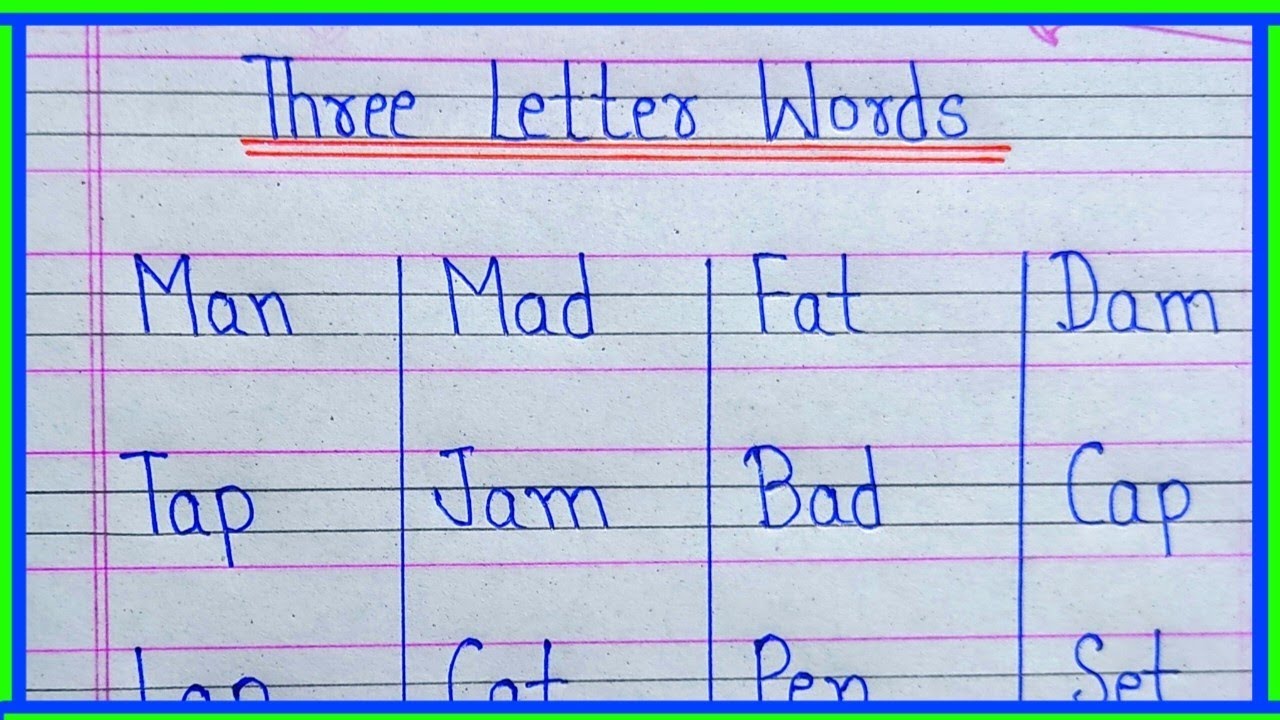 Three Letter Words
Man Mad Fat Dam
Tap Jam Bad Cap
Pen Set